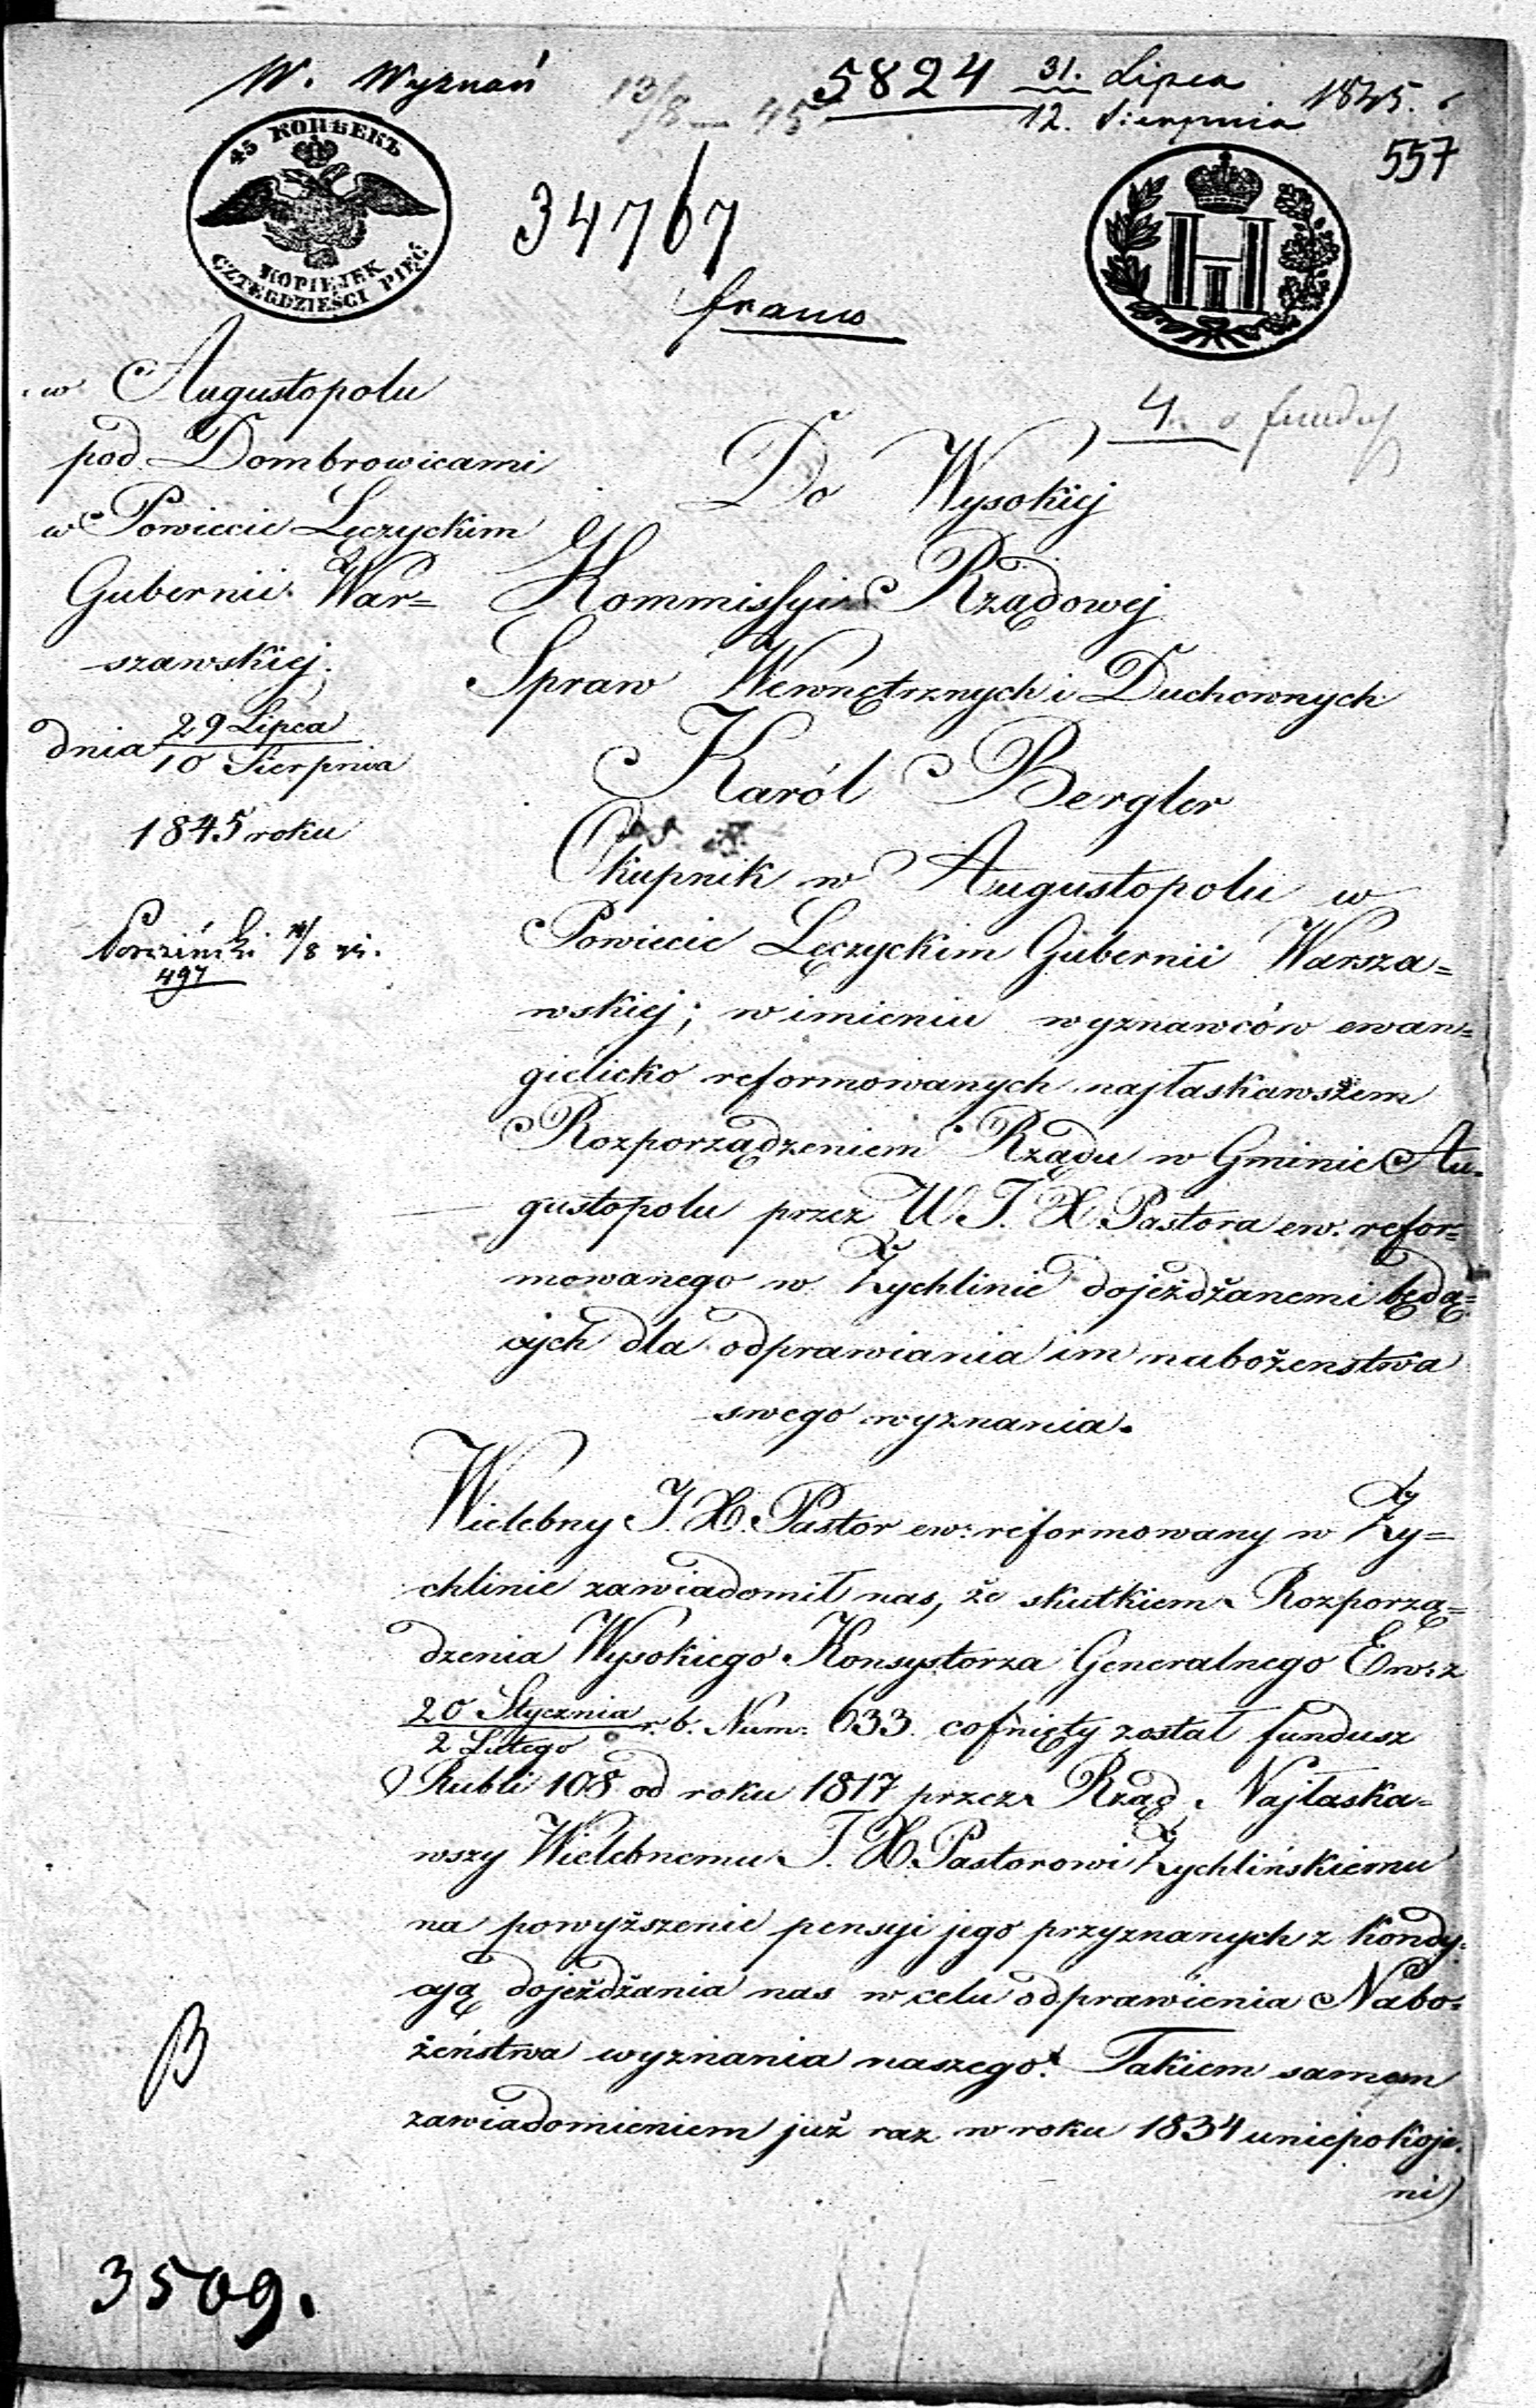 W. Wyznań
13/8 – 45
5824 31. Lipca
12. Sierpnia 1845.
557
45 КОПѢЕКЪ
KOPIEJEK
CZTERDZIEŚCI PIĘĆ
34767
franco
H
4.
w Augustopolu
pod Dombrowicami
w Powiecie Łęczyckim
Gubernii War=
szawskiej.
dnia 29 Lipca
10 Sierpnia
1845 roku
497
B
3509.
Do Wysokiej
Kommissyi Rządowej
Spraw Wewnętrznych i Duchownych
Karól Bergler
Okupnik w Augustopolu w
Powiecie Łęczyckim Gubernii Warsza=
wskiej; w imieniu wyznawców ewan=
gielicko reformowanych najłaskawszem
Rozporządzeniem Rządu w Gminie Au=
gustopolu przez W. J. X. Pastora ew. refor=
mowanego w Żychlinie dojeżdżanemi będą=
cych dla odprawiania im nabożenstwa
swego wyznania.
Wielebny J. X. Pastor ew: reformowany w Ży=
chlinie zawiadomił nas, że skutkiem Rozporzą=
dzenia Wysokiego Konsystorza Generalnego Ew: z
20 Stycznia
2 Lutego r. b. Num. 633. cofnięty został fundusz
Rubli 108 od roku 1817 przez Rząd Najłaska=
wszy Wielebnemu J. X. Pastorowi Żychlińskiemu
na powyższenie pensyi jego przyznanych z kondy=
cyą dojeżdżania nas w celu odprawienia Nabo=
żeństwa wyznania naszego. Takiem samem
zawiadomieniem już raz w roku 1834 uniepokoje=
ni